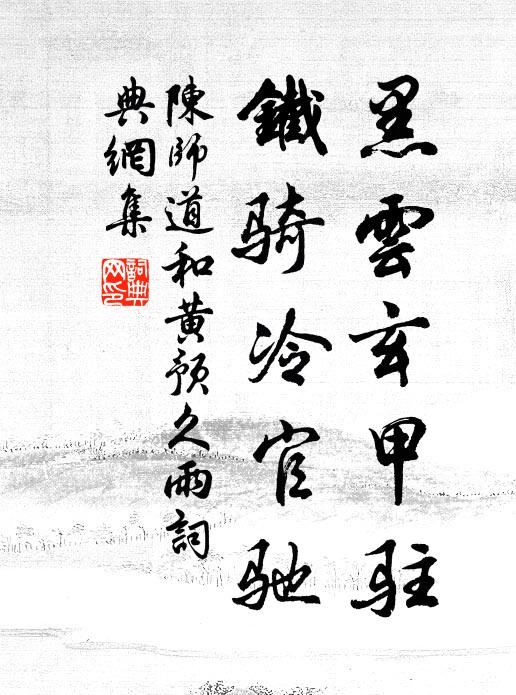 黑雲玄甲駐
鐵騎冷官馳
陳師道和黃預久雨詞
典網集
詞典
网印